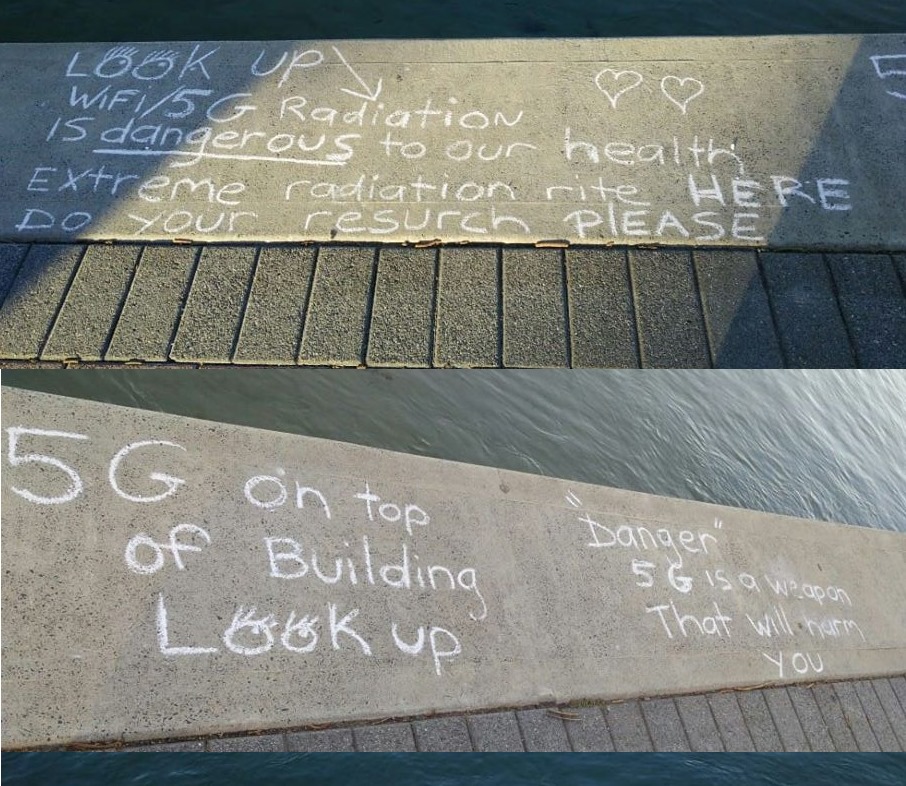 LOOK up
WiFi/5G Radiation
is dangerous to our health
Extreme radiation rite HERE
Do your resurch PlEASE
5
5G on top
of Building
LOOK up
"Danger"
5G is a weapon
That will harm
you